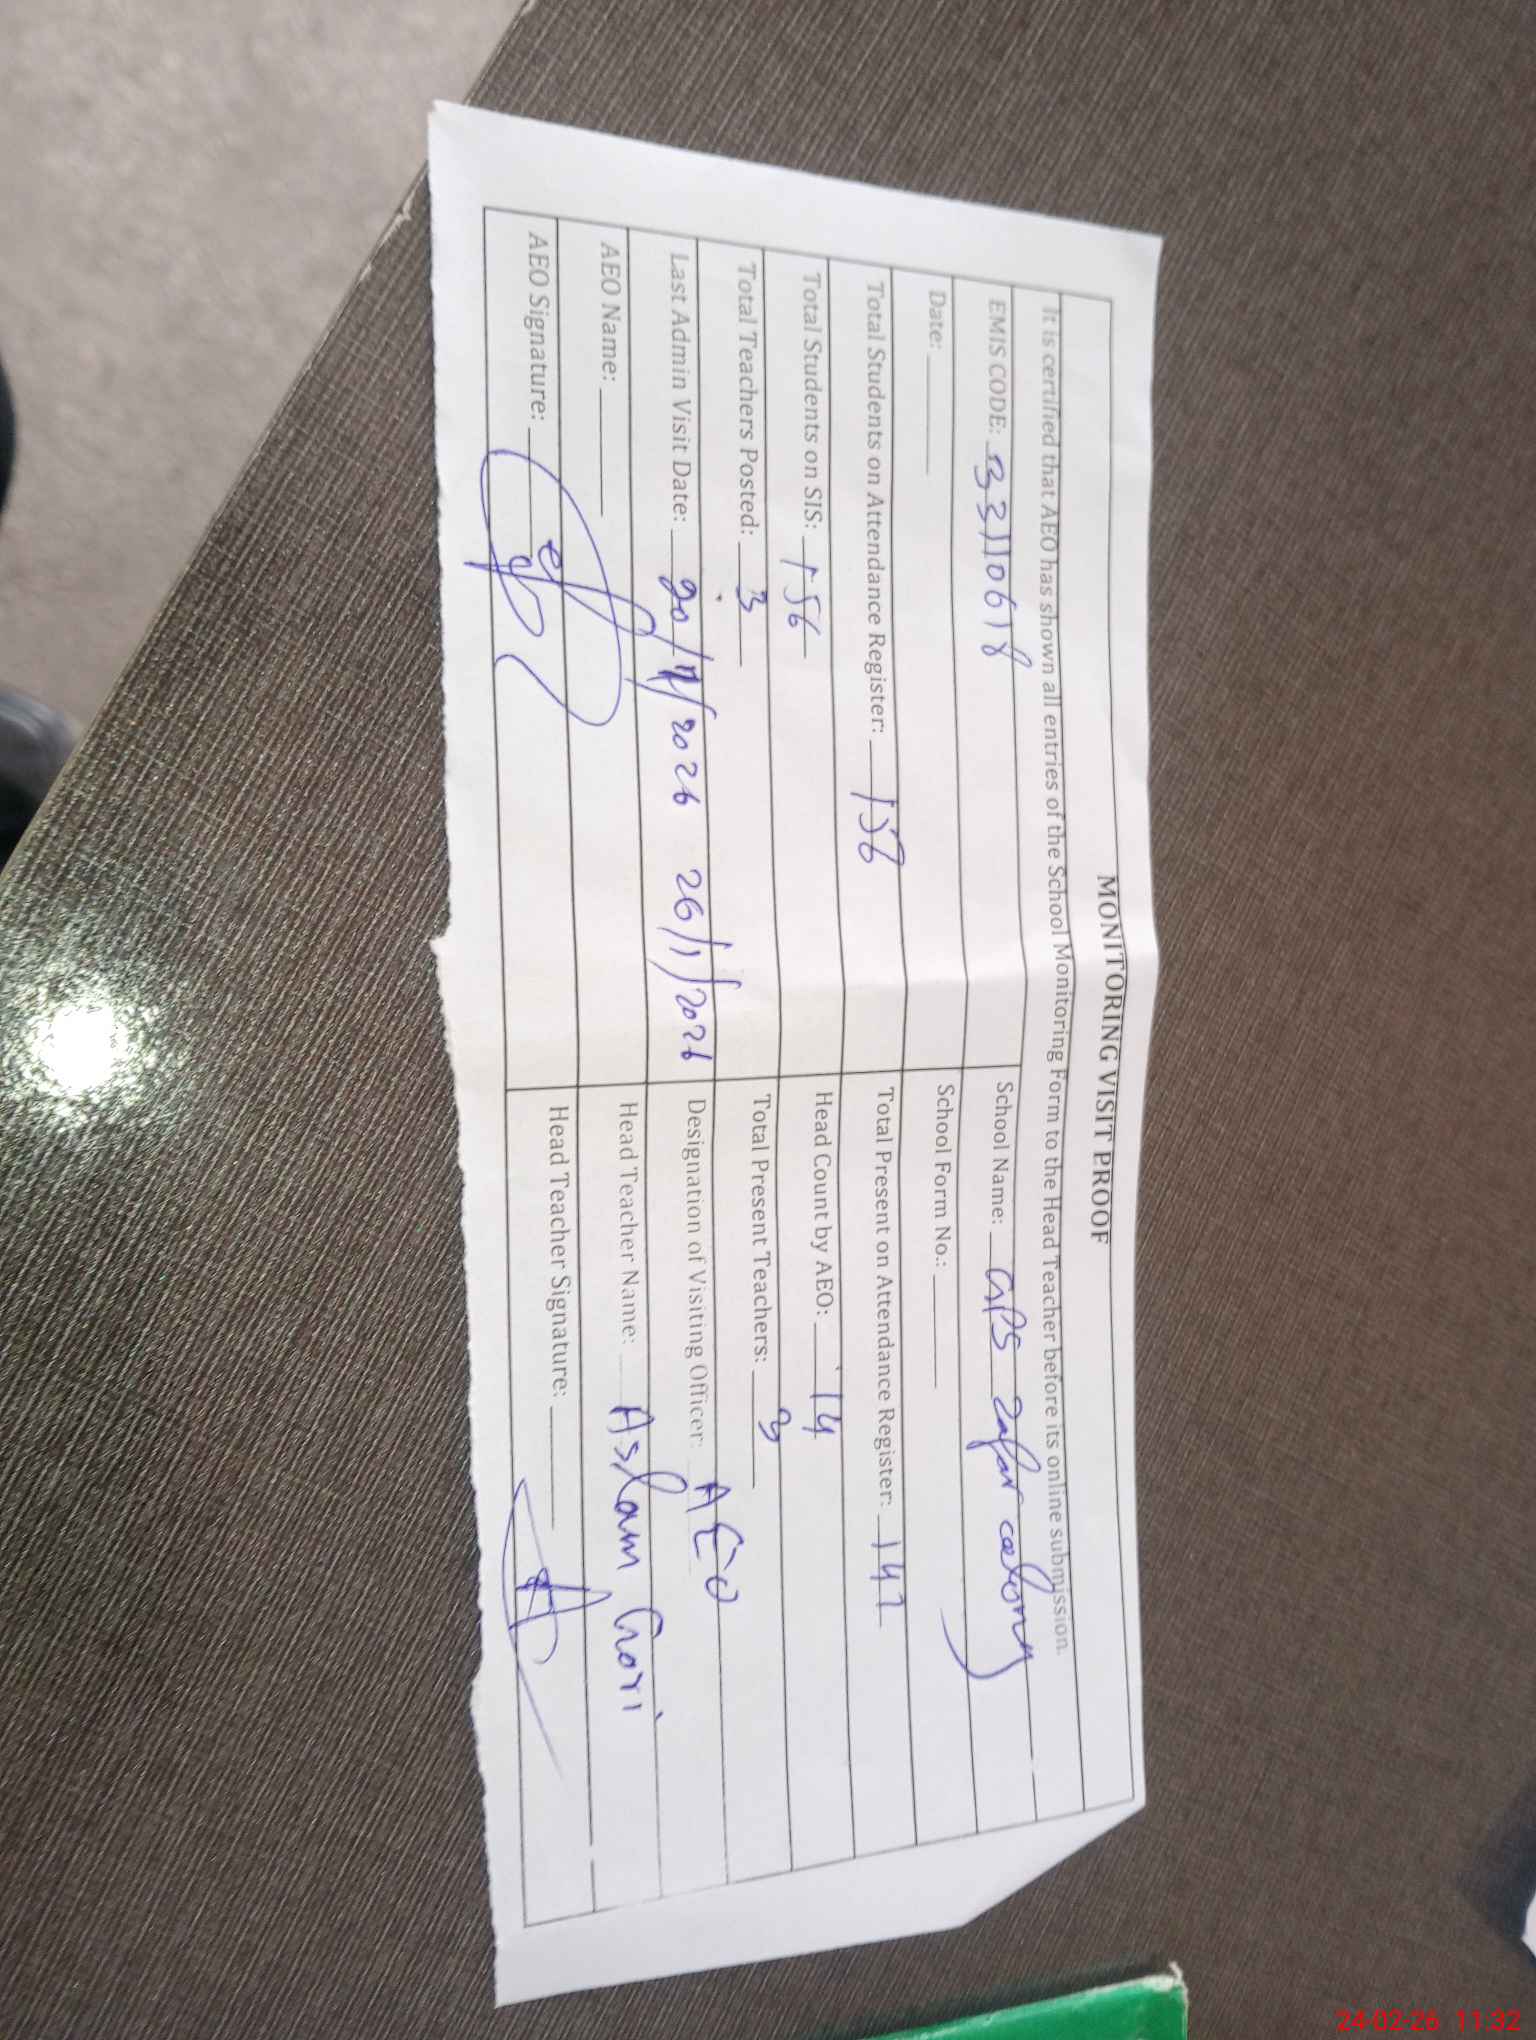 MONITORING VISIT PROOF
It is certified that AEO has shown all entries of the School Monitoring Form to the Head Teacher before its online submission.
EMIS CODE: 33110618 School Name: GPS Zafar colony
Date: School Form No.:
Total Students on Attendance Register: 156 Total Present on Attendance Register: 141
Total Students on SIS: 156 Head Count by AEO: 14
Total Teachers Posted: 3 Total Present Teachers: 3
Last Admin Visit Date: 26/1/2026 Designation of Visiting Officer: AEO
AEO Name: Head Teacher Name: Aslam Gori
AEO Signature: Head Teacher Signature:
24-02-26 11:32